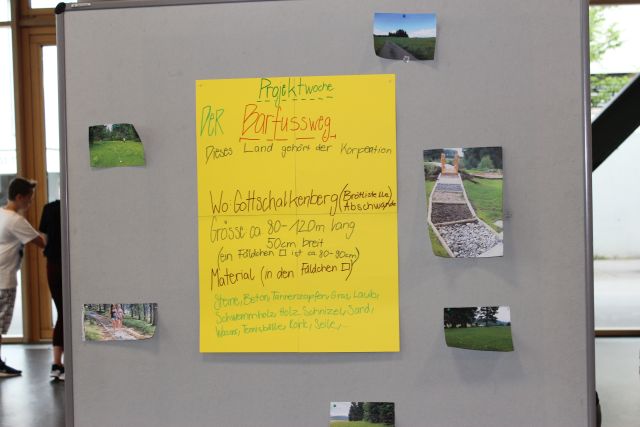 Projektwoche
DER Barfussweg
Dieses Land gehört der Korperation
Wo: Gottschalkenberg (Brötlistelle Abschwände
Grösse: ca. 80-120m lang
50cm breit
(ein Fäldchen □ ist ca. 80-80cm)
Material (in den Fäldchen □)
Steine, Beton, Tannenzapfen, Gras, Laub,
Schwemmholz, Holz Schnizel, Sand,
Wasser, Tennisbälle, Kork, Seile,...